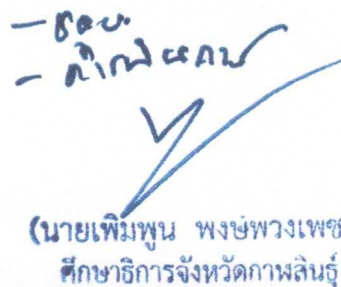 - ชอบ
- ดำเนินการ
(นายเพิ่มพูน พงษ์พวงเพช
ศึกษาธิการจังหวัดกาฬสินธุ์